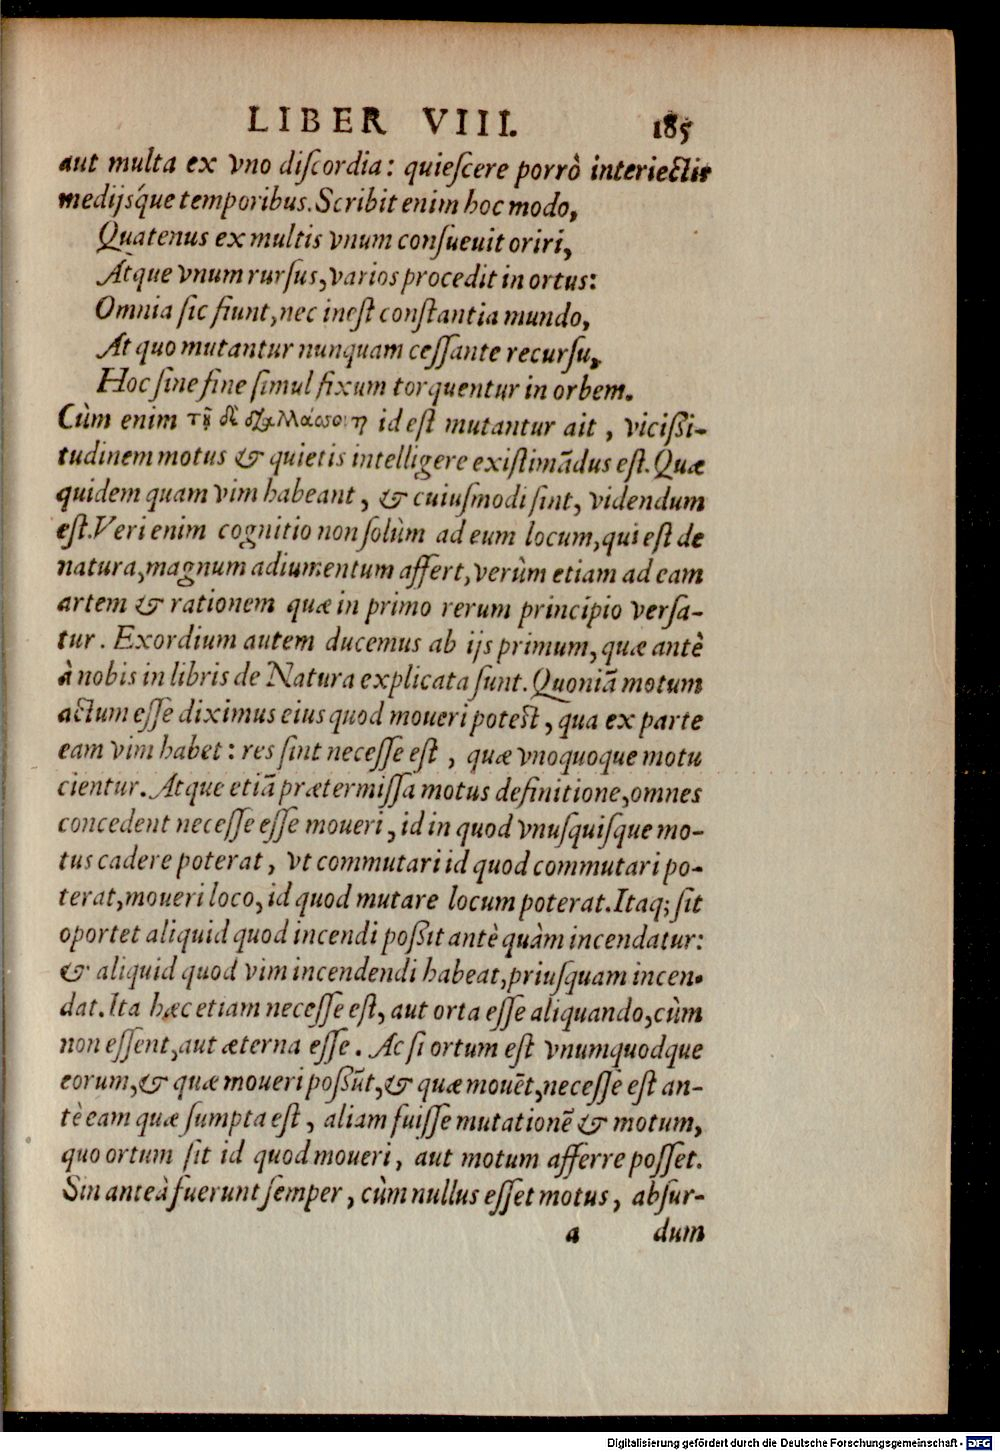 LIBER VIII. 185
aut multa ex vno diſcordia: quieſcere porrò interiectis
medijsq́ue temporibus. Scribit enim hoc modo,
Quatenus ex multis vnum conſueuit oriri,
Atque vnum rurſus, varios procedit in ortus:
Omnia ſic fiunt, nec ineſt conſtantia mundo,
At quo mutantur nunquam ceſſante recurſu,
Hoc ſine fine ſimul fixum torquentur in orbem.
Cùm enim id eſt mutantur ait, viciſſi-
tudinem motus & quietis intelligere exiſtimãdus eſt. Quæ
quidem quam vim habeant, & cuiuſmodi ſint, videndum
eſt. Veri enim cognitio non ſolùm ad eum locum, qui eſt de
natura, magnum adiumentum affert, verùm etiam ad eam
artem & rationem quæ in primo rerum principio verſa-
tur. Exordium autem ducemus ab ijs primum, quæ antè
à nobis in libris de Natura explicata ſunt. Quoniã motum
actum eſſe diximus eius quod moueri poteſt, qua ex parte
eam vim habet: res ſint neceſſe eſt, quæ vnoquoque motu
cientur. Atque etiã prætermiſſa motus definitione, omnes
concedent neceſſe eſſe moueri, id in quod vnuſquiſque mo-
tus cadere poterat, vt commutari id quod commutari po-
terat, moueri loco, id quod mutare locum poterat. Itaq; ſit
oportet aliquid quod incendi poßit antè quàm incendatur:
& aliquid quod vim incendendi habeat, priuſquam incen-
dat. Ita hæc etiam neceſſe eſt, aut orta eſſe aliquando, cùm
non eſſent, aut æterna eſſe. Ac ſi ortum eſt vnumquodque
eorum, & quæ moueri poßũt, & quæ mouẽt, neceſſe eſt an-
tè eam quæ ſumpta eſt, aliam fuiſſe mutationẽ & motum,
quo ortum ſit id quod moueri, aut motum afferre poſſet.
Sin anteà fuerunt ſemper, cùm nullus eſſet motus, abſur-
a dum
Digitalisierung gefördert durch die Deutsche Forschungsgemeinschaft - DFG